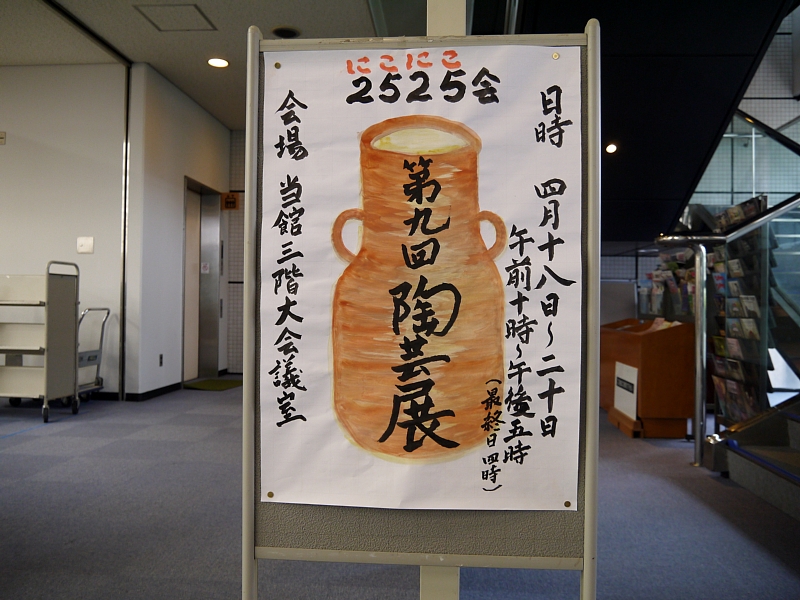 にこにこ
2525会
日時 四月十八日～二十日
午前十時～午後五時
(最終日四時)
第九回 陶芸展
会場 当館三階大会議室